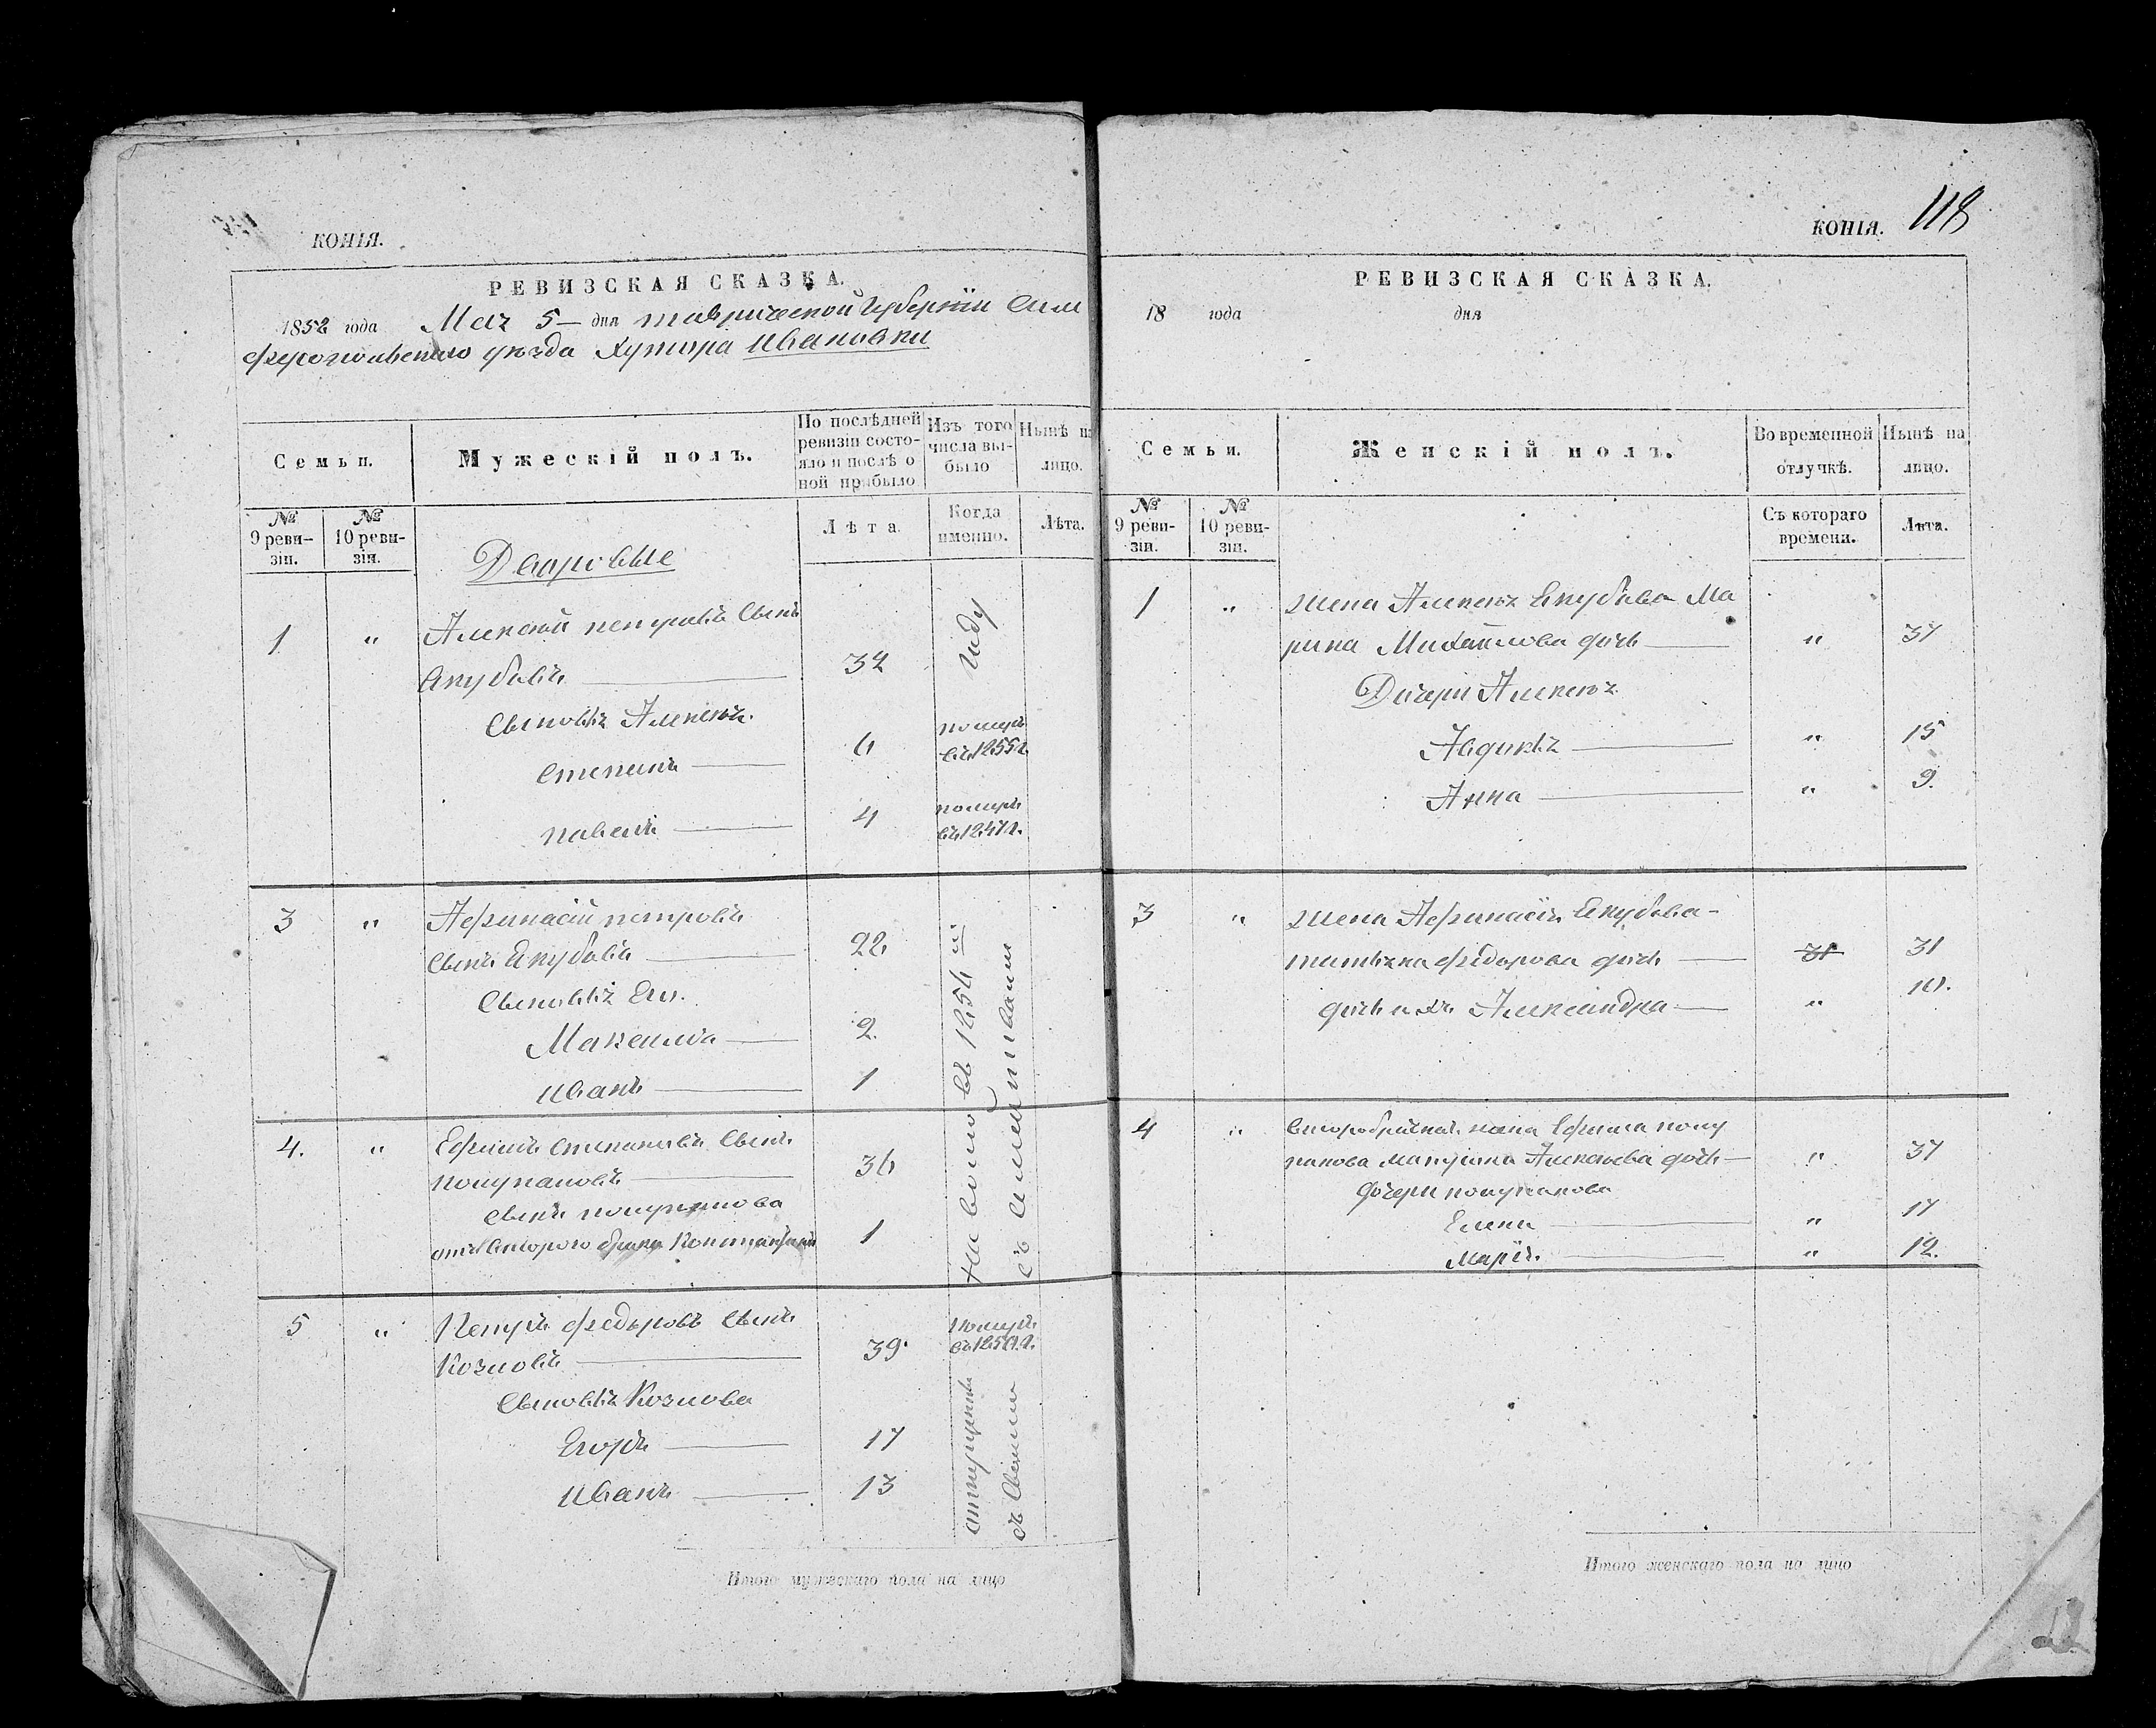 КОПІЯ.
РЕВИЗСКАЯ СКАЗКА.
1858 года Мая 5 — дня Таврической Губерніи Сим
феропольского уезда Хутора Ивановки
Семьи.
Мужескій полъ.
По послѣдней ревизіи состо-
яло и послѣ о
ной прибыло
Изъ того
числа вы-
было
Нынѣ на
лицо.
№ 9 реви-
зіи.
№ 10 реви-
зіи.
Дворовые
Лѣта
Когда
именно.
Лѣта.
1 " Алексей Петровъ Сынъ
Якубовъ — 32
Сыновья Алексея.
Степанъ — 6 помер
въ 1855 г.
Павелъ — 4 померъ
въ 1857 г.
3 " Афанасій Петровъ
Сынъ Якубовъ — 22
Сыновья Его.
Максимъ — 2.
Иванъ — 1
4. " Ефимъ Степановъ Сынъ
— 36
Сынъ
отъ второго брака Константинъ 1
въ 1854
съ
5 " Петръ Федоровъ Сынъ
Козловъ — 39. Померъ
Сыновья Козлова
Егоръ — 17
Иванъ — 13
Итого мужескаго пола на лицо
КОПІЯ. 118
РЕВИЗСКАЯ СКАЗКА.
18 года дня
Семьи.
Женскій полъ.
Во временной
отлучкѣ.
Нынѣ на
лицо.
№ 9 реви-
зіи.
№ 10 реви-
зіи.
Съ котораго
времени.
Лѣта.
1 " жена Алексея Якубова Ма
рина Михайлова дочь — " 37
Дочери Алексея
Авдотья — " 15
Анна — " 9.
3 " жена Афанасія Якубова -
Татьяна Федорова дочь — 31 31
дочь ихъ Александра — " 10.
4 " Второбрачная жена Ефима
Алексеева дочь — " 37
Дочери
Елена — " 17
Марія — " 12.
Итого женскаго пола на лицо